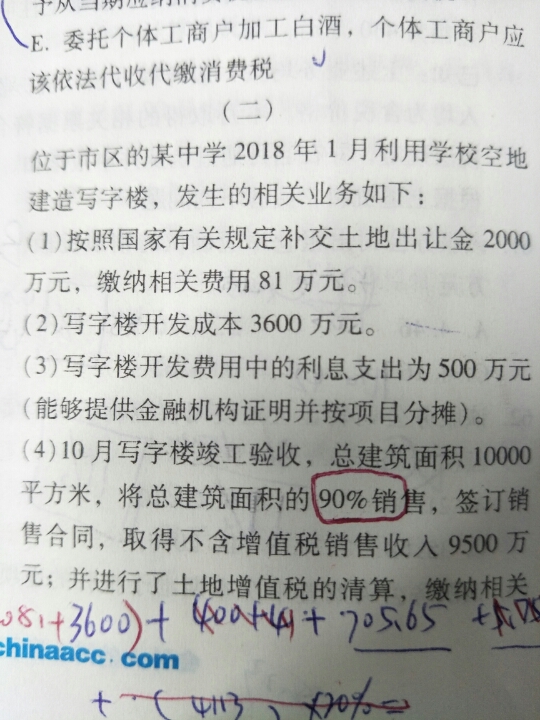 E. 委托个体工商户加工白酒，个体工商户应
该依法代收代缴消费税
（二）
位于市区的某中学 2018 年 1 月利用学校空地
建造写字楼，发生的相关业务如下：
(1)按照国家有关规定补交土地出让金 2000
万元，缴纳相关费用 81 万元。
(2)写字楼开发成本 3600 万元。
(3)写字楼开发费用中的利息支出为 500 万元
(能够提供金融机构证明并按项目分摊)。
(4)10 月写字楼竣工验收，总建筑面积 10000
平方米，将总建筑面积的 90%销售，签订销
售合同，取得不含增值税销售收入 9500 万
元；并进行了土地增值税的清算，缴纳相关
081+3600)+ + 705.65 +
chinaacc.com
+ ×20%=